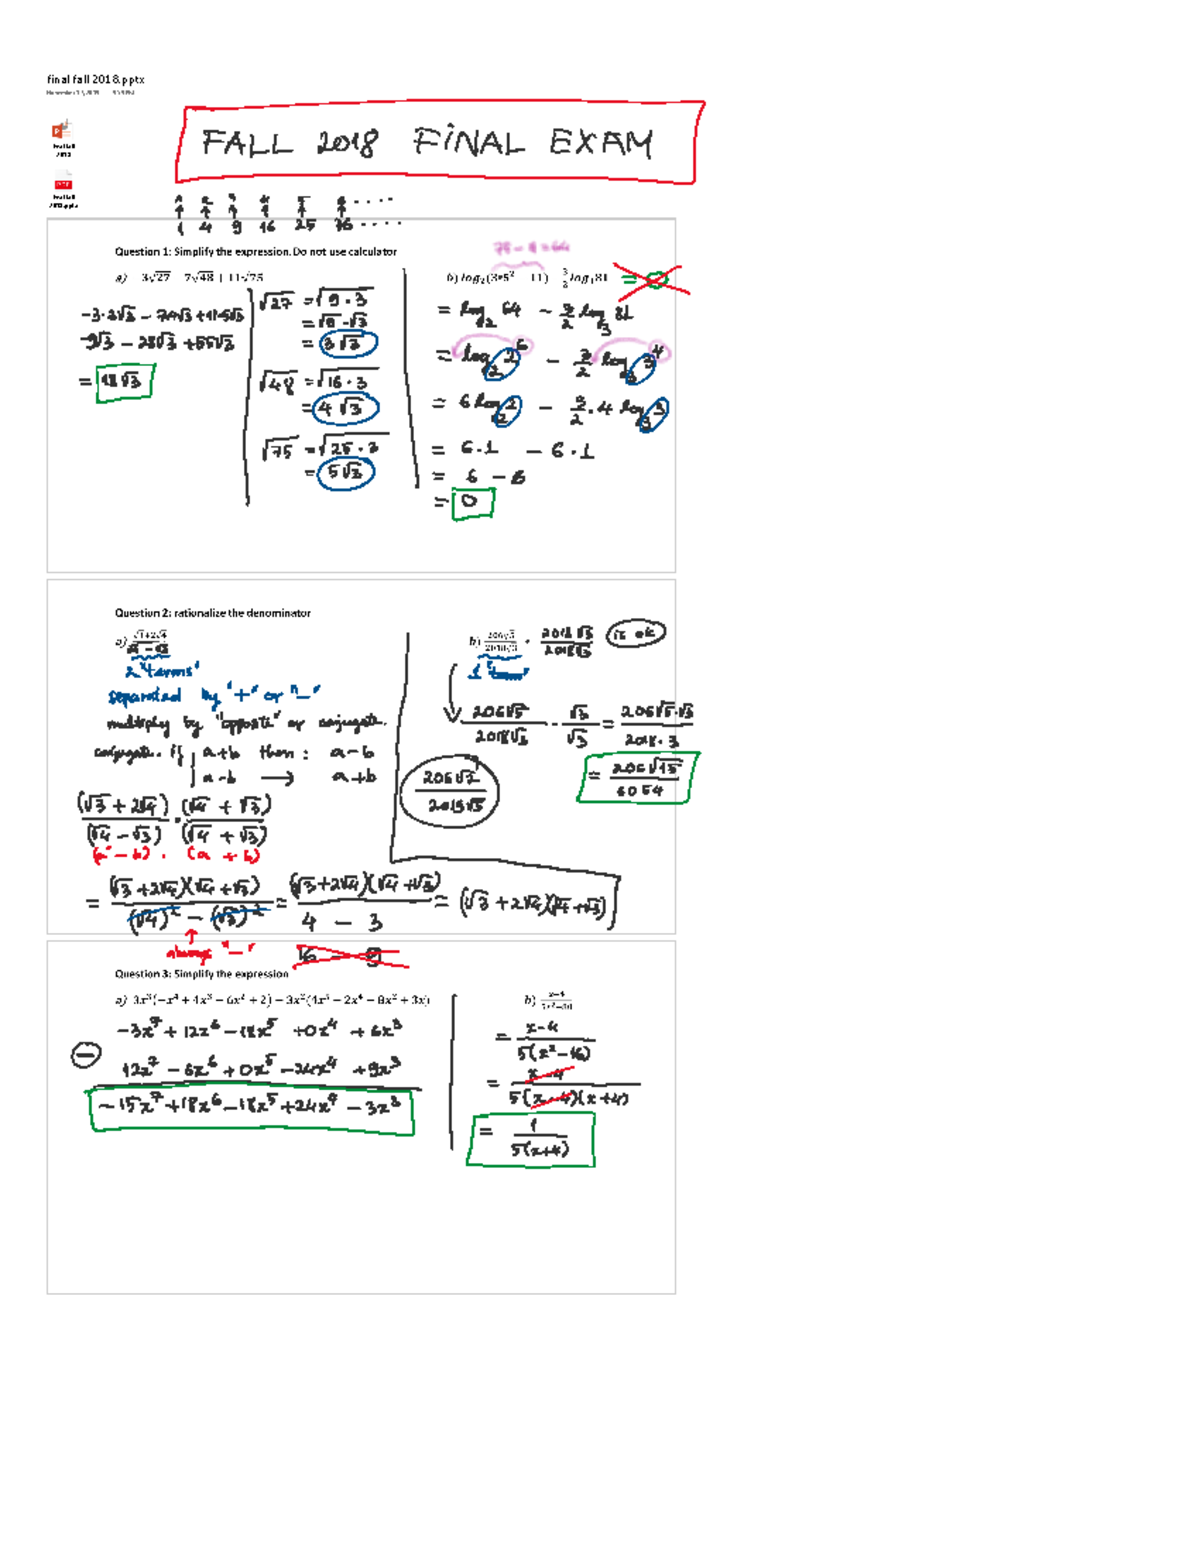 final fall 2018.pptx
FALL 2018 FINAL EXAM
1 4 9 16 25 36 .....
Question 1: Simplify the expression. Do not use calculator
a) 3√27 7√48 + 11√75
75 - 11 = 64
b) log₂(3*5² 11) 3/2 log₃81 = 0
-3·3√3 - 7·4√3 + 11·5√3
-9√3 - 28√3 + 55√3
= 18√3
√27 = √9·3
= √9·√3
= 3√3
√48 = √16·3
= 4√3
√75 = √25·3
= 5√3
= log₂ 64 - 3/2 log₃ 81
= log₂ 2⁶ - 3/2 log₃ 3⁴
= 6 log₂ 2 - 3/2·4 log₃ 3
= 6·1 - 6·1
= 6 - 6
= 0
Question 2: rationalize the denominator
a)
2 "terms"
separated by "+" or "-"
multiply by "opposite" or conjugate.
conjugate. if { a+b then: a-b
a-b → a+b
(√3 + 2√4)/(√4 - √3) · (√4 + √3)/(√4 + √3)
(a - b) · (a + b)
= (√3 + 2√4)(√4 + √3)/((√4)² - (√3)²) = (√3+2√4)(√4+√3)/(4 - 3) = (√3 + 2√4)(√4+√3)
always "-"
16 - 9
b) 206√5/2018√3 · 2018√3/2018√3 is ok
1 "term"
206√5/2018√3 · √3/√3 = 206√5·√3/2018·3
= 206√15/6054
Question 3: Simplify the expression
a) 3x³(-x⁴ + 4x³ - 6x² + 2) - 3x²(4x⁵ - 2x⁴ - 8x² + 3x)
-3x⁷ + 12x⁶ - 18x⁵ + 0x⁴ + 6x³
- 12x⁷ - 6x⁶ + 0x⁵ - 24x⁴ + 9x³
-15x⁷ + 18x⁶ - 18x⁵ + 24x⁴ - 3x³
b) x-4/5x²-80
= x-4/5(x²-16)
= x-4/5(x-4)(x+4)
= 1/5(x+4)